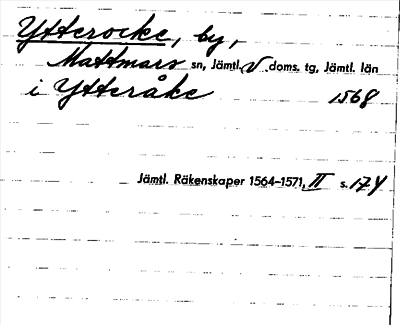 Ytterocke, by,
Mattmars sn, Jämtl. v. doms. tg, Jämtl. län
i Ytteråke 1568
Jämtl. Räkenskaper 1564–1571, II s. 174